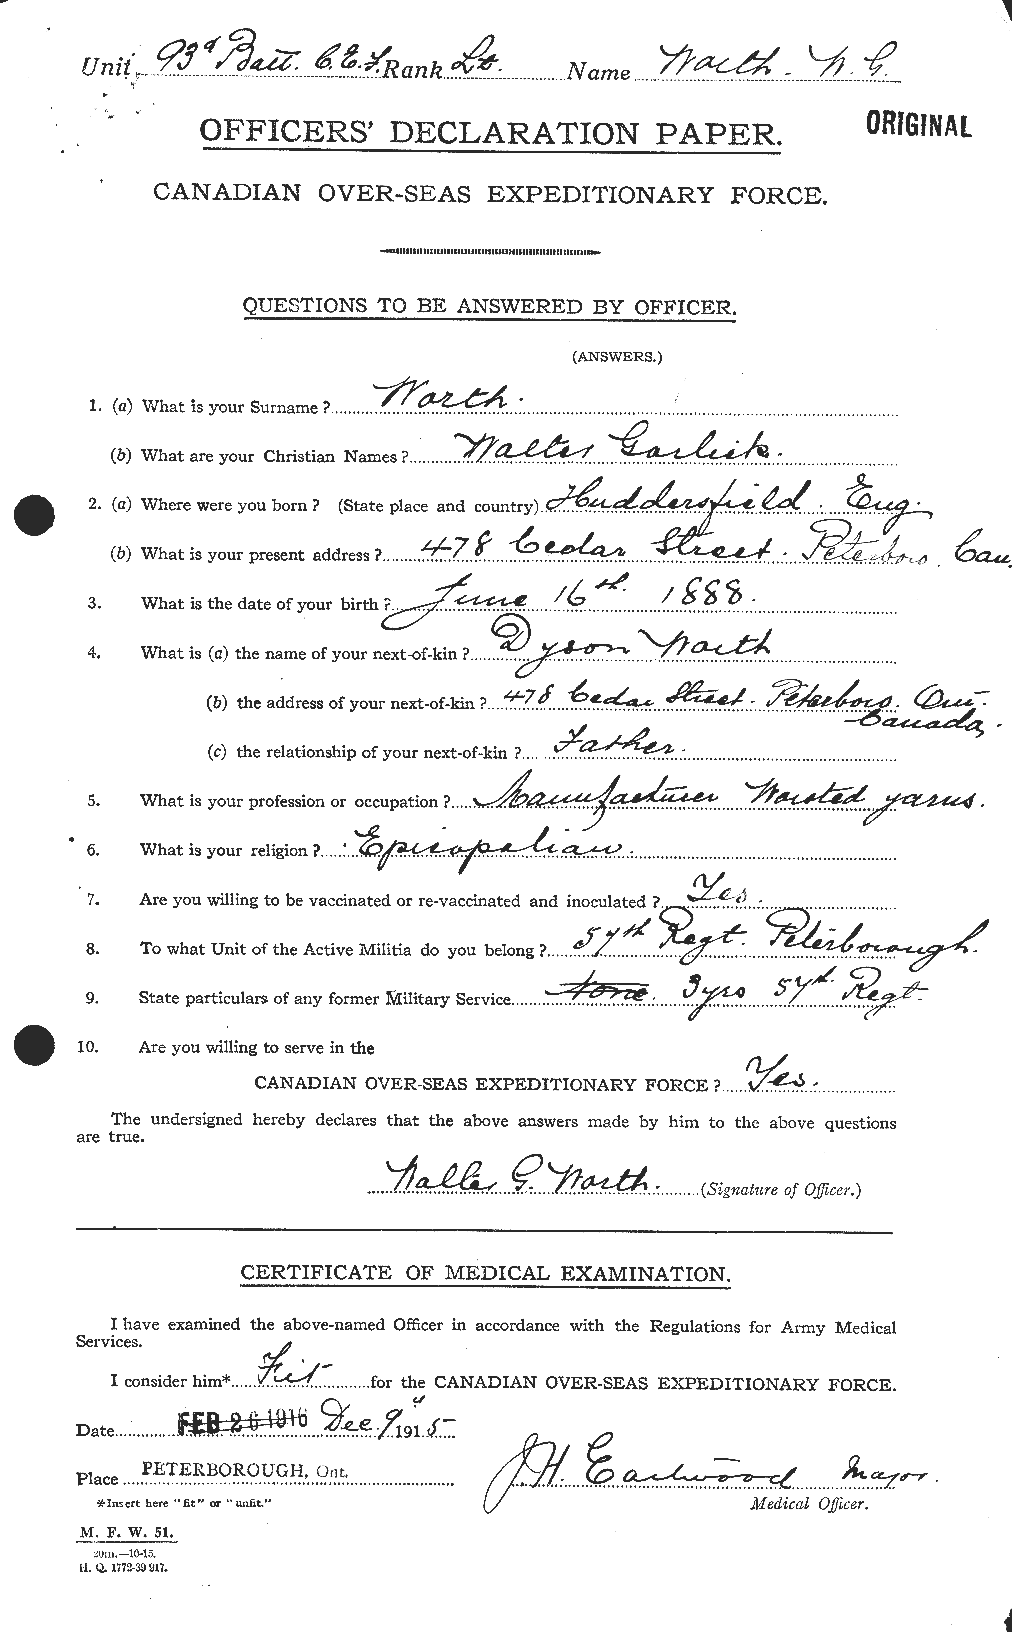 Unit 93d Batt. C.E.F. Rank Lt. Name Worth. W. G.
ORIGINAL
OFFICERS' DECLARATION PAPER.
CANADIAN OVER-SEAS EXPEDITIONARY FORCE.
QUESTIONS TO BE ANSWERED BY OFFICER.
(ANSWERS.)
1. (a) What is your Surname? Worth.
(b) What are your Christian Names? Walter Garlick.
2. (a) Where were you born? (State place and country) Huddersfield. Eng.
(b) What is your present address? 478 Cedar Street. Peterboro. Can.
3. What is the date of your birth? June 16th. 1888.
4. What is (a) the name of your next-of-kin? Dyson Worth
(b) the address of your next-of-kin? 478 Cedar Street. Peterboro. Ont.
Canada.
(c) the relationship of your next-of-kin? Father.
5. What is your profession or occupation? Manufacturer Worsted yarns.
6. What is your religion? Episcopalian.
7. Are you willing to be vaccinated or re-vaccinated and inoculated? Yes.
8. To what Unit of the Active Militia do you belong? 57th Regt. Peterborough.
9. State particulars of any former Military Service None. 3 yrs 57th Regt.
10. Are you willing to serve in the
CANADIAN OVER-SEAS EXPEDITIONARY FORCE? Yes.
The undersigned hereby declares that the above answers made by him to the above questions
are true.
Walter G. Worth. (Signature of Officer.)
CERTIFICATE OF MEDICAL EXAMINATION.
I have examined the above-named Officer in accordance with the Regulations for Army Medical
Services.
I consider him* Fit for the CANADIAN OVER-SEAS EXPEDITIONARY FORCE.
Date FEB 26 1916 Dec. 9 1915
Place PETERBOROUGH, Ont.
J.H. Eastwood Major.
*Insert here "fit" or "unfit."
Medical Officer.
M. F. W. 51.
20m.—10-15.
H. Q. 1772-39 917.